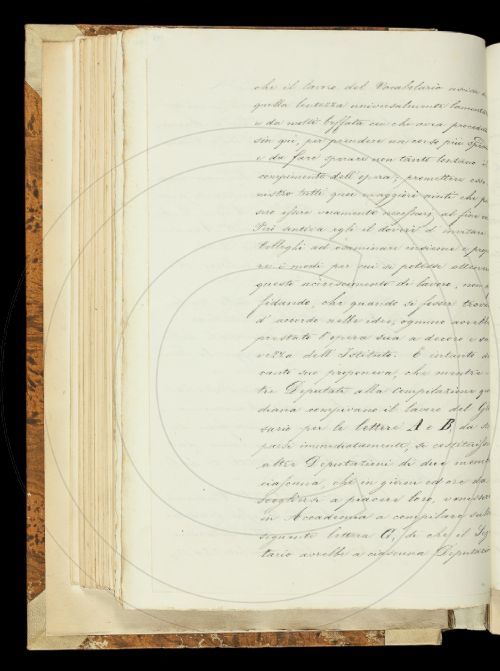 che il lavoro del Vocabolario usciva d
quella lentezza universalmente lamenta
e da molti beffata con che avea proceduto
sin qui, per prendere un corso più spe
e da fare sperare non tanto lontano il
compimento dell'opera; promettere esso
nistro tutti quei maggiori aiuti che po
sero essere veramente necessari, al fine
Però sentiva egli il dovere d'invitare
Colleghi ad esaminare insieme e prop
re i modi per cui si potesse ottenere
questo acceleramento di lavoro, con
fidando, che quando si fosse trova
d'accordo nelle idee, ognuno avrebbe
prestata l'opera sua a decoro e sal
vezza dell'Istituto. E intanto da
canto suo proponeva, che mentre
tre Deputati alla compilazione quo
diana compivano il lavoro del Glos
sario per le lettere A e B, da
parte immediatamente, si costituisse
altre Deputazioni di due membri
ciascuna, che in giorni ed ore da
scegliersi a piacere loro, venissero
in Accademia a compilare sulla
seguente lettera C, di che il Seg
tario avrebbe a ciascuna Deputazio